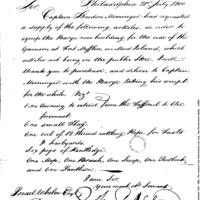 Philadelphia 21st July 1800
Sir,
Captain Meminger has requested
a supply of the following articles, in order to
equip the Barge now building for the use of the
Garrison at Fort Mifflin on Mud Island, which
articles not being in the public Store. I will
thank you to purchase, and deliver to Captain
Meminger with the Barge taking his receipt
for the whole. Viz.
One awning to extend from the to the
foremast.
One small Flag.
One coil of 12 thread ratling Rope for Sheets
& halyards.
Six pigs of Kentledge.
One Mop, One Broom, One Scoop, One Buckett,
and One Lanthorn.
I am Sir,
Your most Ob. Servant
Israel Whelen Esq.